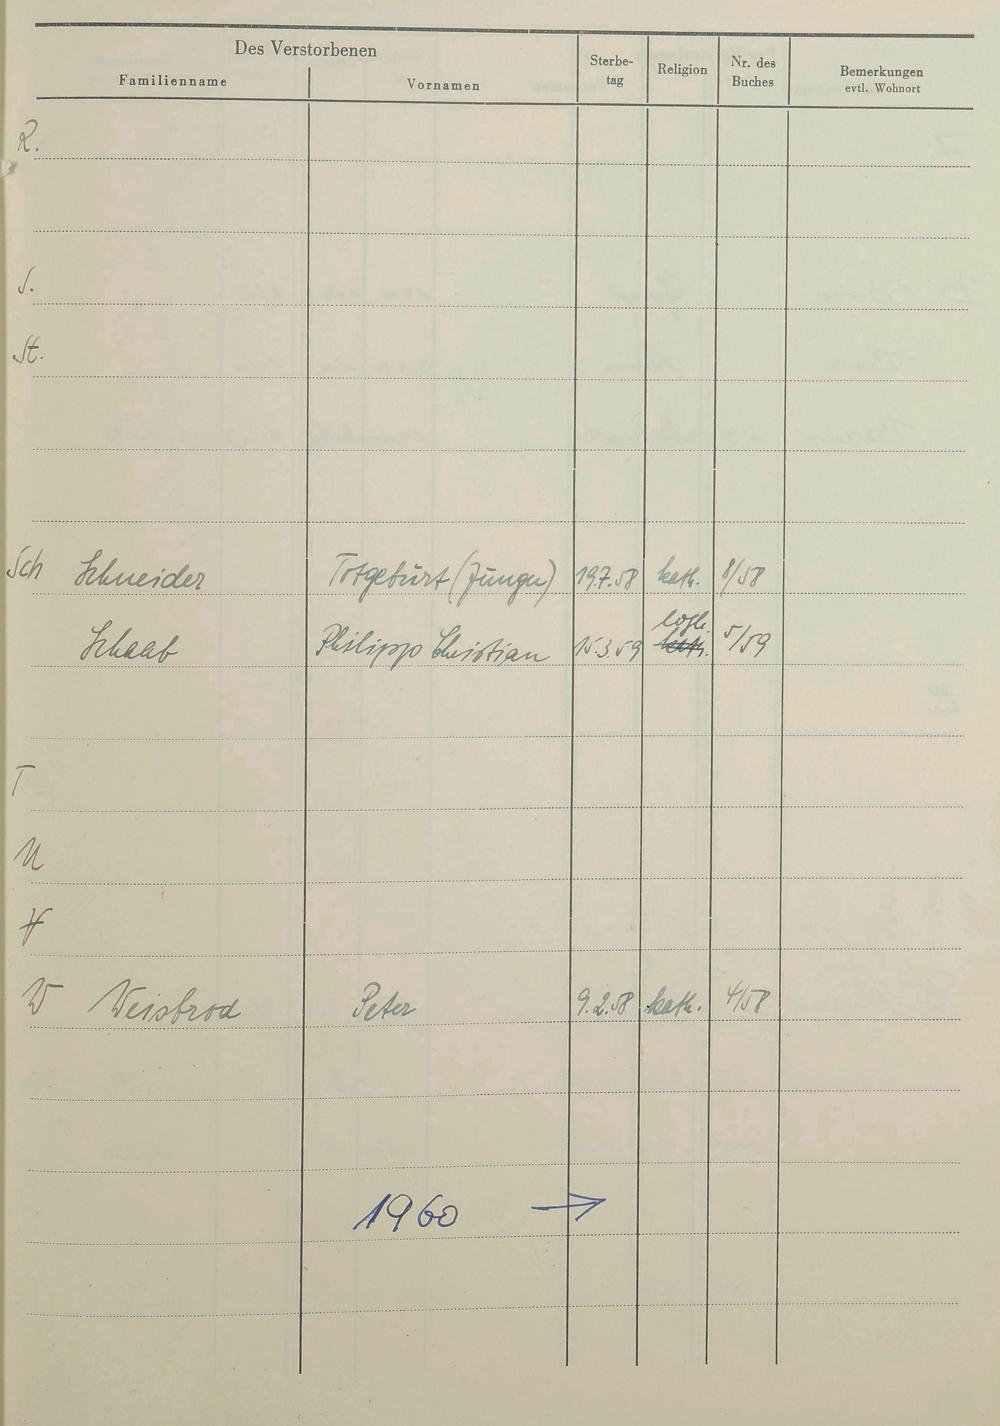 Des Verstorbenen
Familienname Vornamen Sterbe- tag Religion Nr. des Buches Bemerkungen evtl. Wohnort
R.
S.
St.
Sch Schneider Totgeburt (Junge) 19.7.58 kath. 8/58
Schaab Philipp Christian 15.3.59 kath. 5/59
T
U
V
W Weisbrod Peter 9.2.58 kath. 4/58
1960 →